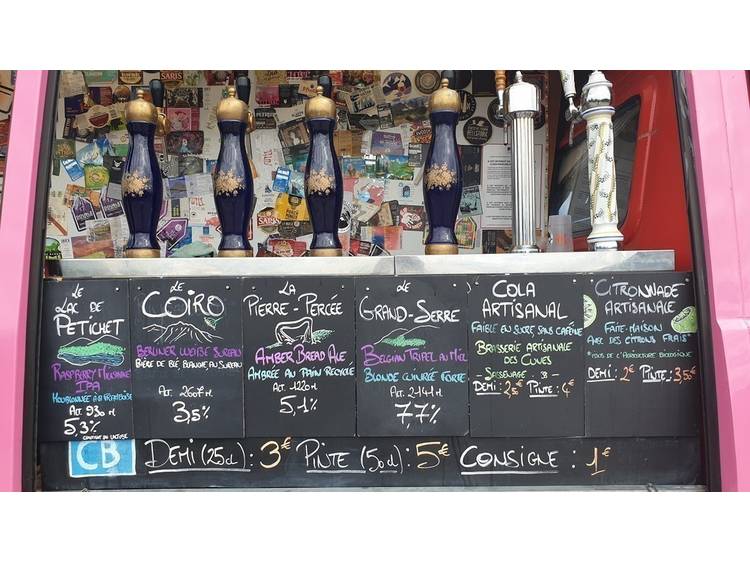 LE
LAC DE
PETICHET
RASPBERRY MILKSHAKE
IPA
HOUBLONNÉE À LA FRAMBOISE
ALT. 930 M.
5,3%
CONTIENT DU LACTOSE
LE
COIRO
BERLINER WEISSE SUREAU
BIÈRE DE BLÉ BLANCHE AU SUREAU
ALT. 2607 M.
3,5%
LA
PIERRE-PERCÉE
AMBER BREAD ALE
AMBRÉE AU PAIN RECYCLÉ
ALT. 1220 M.
5,1%
LE
GRAND-SERRE
BELGIAN TRIPEL AU MIEL
BLONDE CUIVRÉE FORTE
ALT. 2141 M.
7,7%
COLA
ARTISANAL
FAIBLE EN SUCRE SANS CAFÉINE
BRASSERIE ARTISANALE
DES CUVES
- SASSENAGE - 38 -
DEMI : 2,50€ PINTE : 4€
CITRONNADE
ARTISANALE
FAITE-MAISON
AVEC DES CITRONS FRAIS*
*ISSUS DE L'AGRICULTURE BIOLOGIQUE
DEMI : 2€ PINTE : 3,50€
CB
DEMI (25cl) : 3€ PINTE (50cl) : 5€ CONSIGNE : 1€